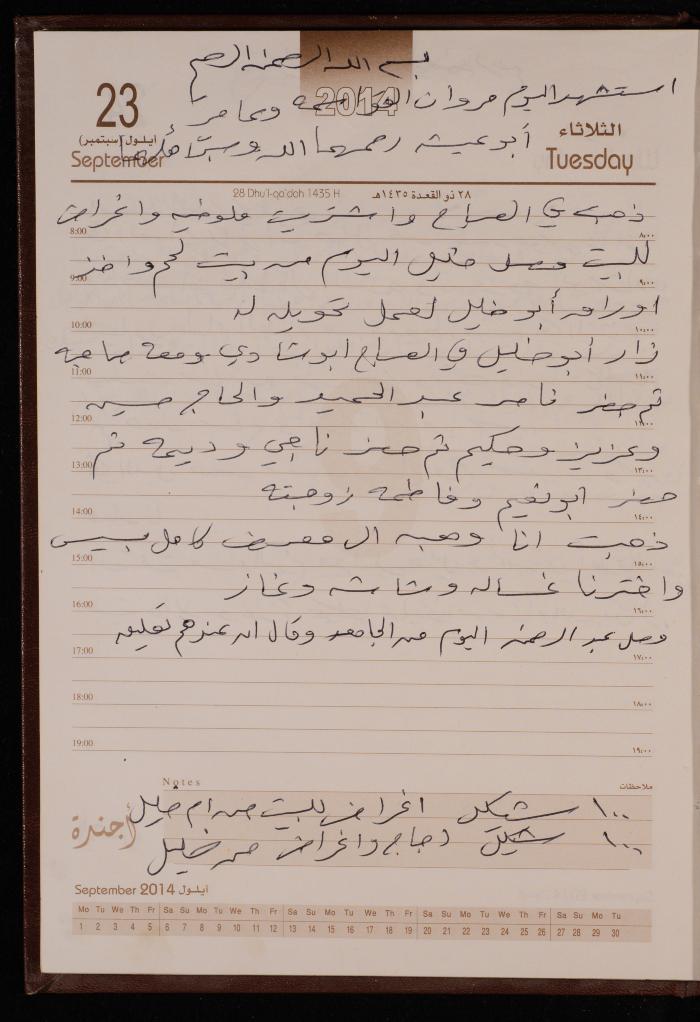 بسم الله الرحمن الرحيم
23
2014
استشهد اليوم مروان القواسمة وعامر
أيلول (سبتمبر)
September
الثلاثاء
Tuesday
أبو عيشة رحمهما الله
28 Dhu'l-qa'dah 1435 H
٢٨ ذو القعدة ١٤٣٥هـ
ذهبت في الصباح واشتريت ملوخيه واغراض
8:00 ٨:٠٠
للبيت وصل خليل اليوم من بيت لحم واخذ
9:00 ٩:٠٠
اوراق أبو خليل لعمل تحويله له
10:00 ١٠:٠٠
زار أبو خليل في الصباح ابو شادي ومعه جماعه
11:00 ١١:٠٠
ثم حضر ناصر عبد الحميد والحاج حسين
12:00 ١٢:٠٠
وعزيز وحكيم ثم حضر ناجي وديمه ثم
13:00 ١٣:٠٠
حضر ابو نعيم وفاطمه زوجته
14:00 ١٤:٠٠
ذهبت انا وهبه الى معرض كامل
15:00 ١٥:٠٠
واخترنا غساله وشاشه وغاز
16:00 ١٦:٠٠
وصل عبد الرحمن اليوم من الجامعه وقال ان عندهم تعليق
17:00 ١٧:٠٠
18:00 ١٨:٠٠
19:00 ١٩:٠٠
Notes ملاحظات
١٠٠ شيكل اغراض للبيت من ام خليل
أجندة
١٠٠ شيكل دجاج واغراض من خليل
September 2014 أيلول
Mo Tu We Th Fr Sa Su Mo Tu We Th Fr Sa Su Mo Tu We Th Fr Sa Su Mo Tu We Th Fr Sa Su Mo Tu
1 2 3 4 5 6 7 8 9 10 11 12 13 14 15 16 17 18 19 20 21 22 23 24 25 26 27 28 29 30